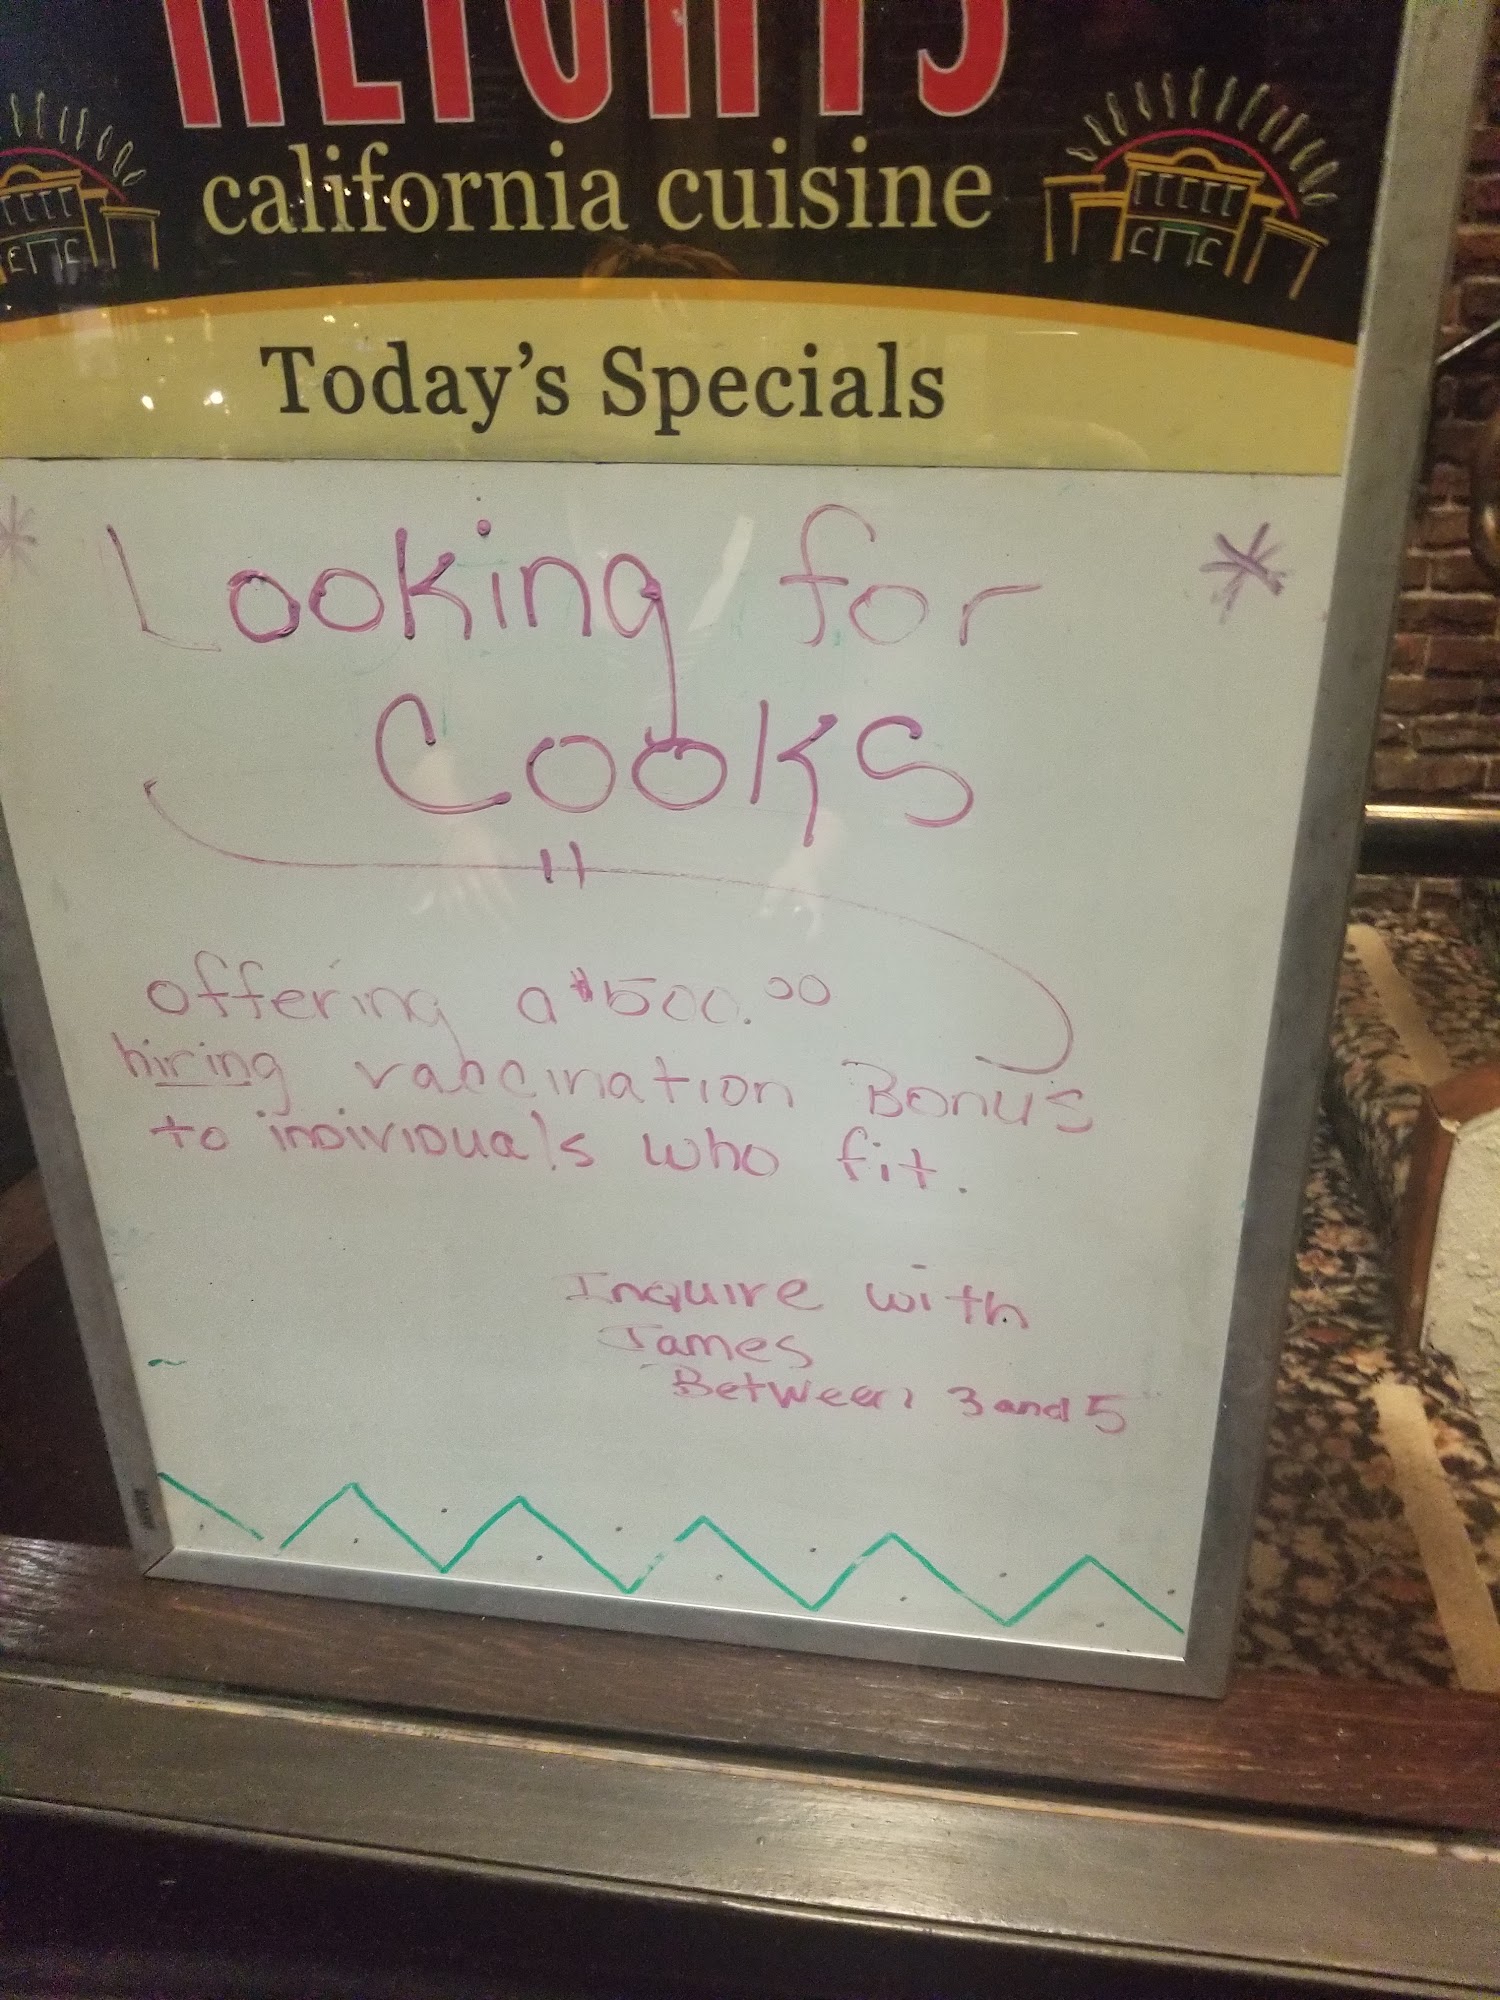 HEIGHTS
california cuisine
Today's Specials
* Looking for *
Cooks
offering a $500.00
hiring vaccination Bonus
to individuals who fit.
Inquire with
James
Between 3 and 5